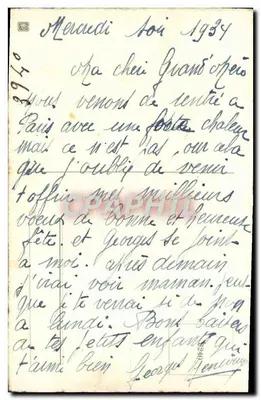 Mercredi soir 1934
Ma cheri Grand' Mère
nous venons de rentré a
Paris avec une forte chaleur
mais ce n'est pas pour cela
que j'oublie de venir
t'offrir mes meilleurs
voeux de bonne et heureuse
fête et Georges se joint
a moi. après demain
j'irai voir maman.
que je te verrai si
a lundi. Bons baisers
de tes petits enfants qui
t'aime bien Georges
3940